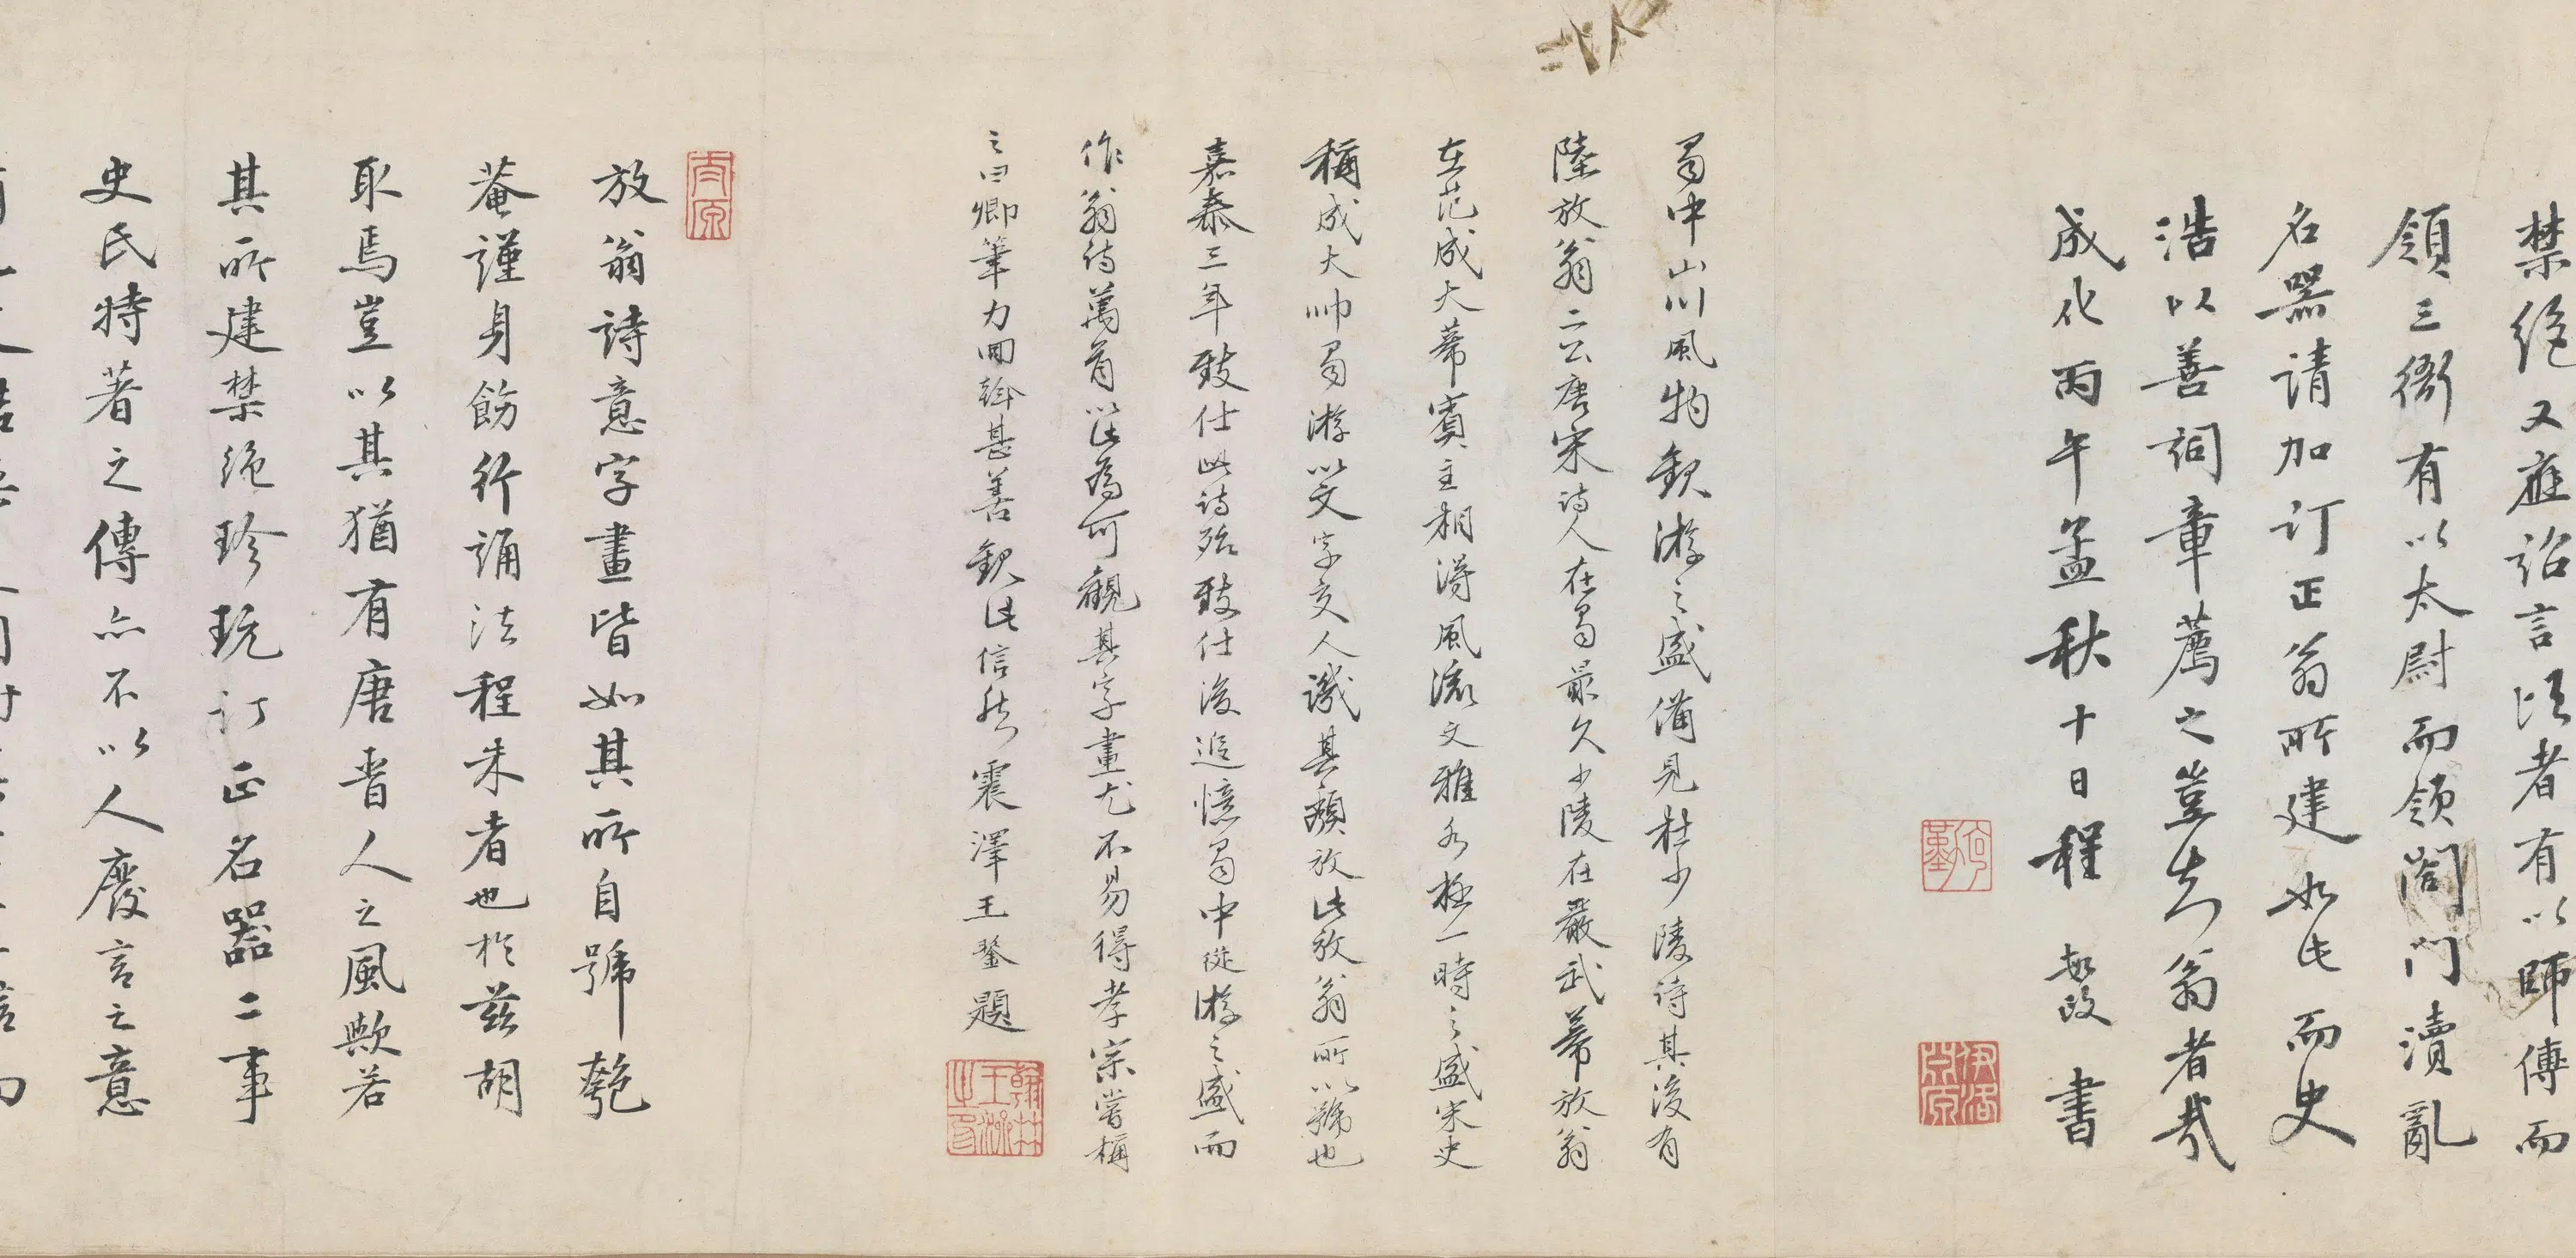 禁絶又應詔言頃者有以師傅而
領三衙有以太尉而領閤門瀆亂
名器請加訂正翁所建如此而史
浩以善詞章薦之豈知翁者哉
成化丙午孟秋十日程敏政書
蜀中山川風物欽游之盛備見杜少陵詩其後有
陸放翁二公唐宋詩人在蜀最久少陵在嚴武幕放翁
在范成大幕賓主相得風流文雅各極一時之盛宋史
稱成大帥蜀游以文字交人譏其頹放此放翁所以號也
嘉泰三年致仕此詩殆致仕後追憶蜀中從游之盛而
作翁詩萬首此為可觀其字畫尤不易得孝宗嘗稱
之曰卿筆力回斡甚善觀此信然震澤王鏊題
太原
放翁詩意字畫皆如其所自號匏
菴謹身飭行誦法程朱者也於茲胡
取焉豈以其猶有唐晉人之風歟若
其所建禁絶珍玩訂正名器二事
史氏特著之傳亦不以人廢言之意